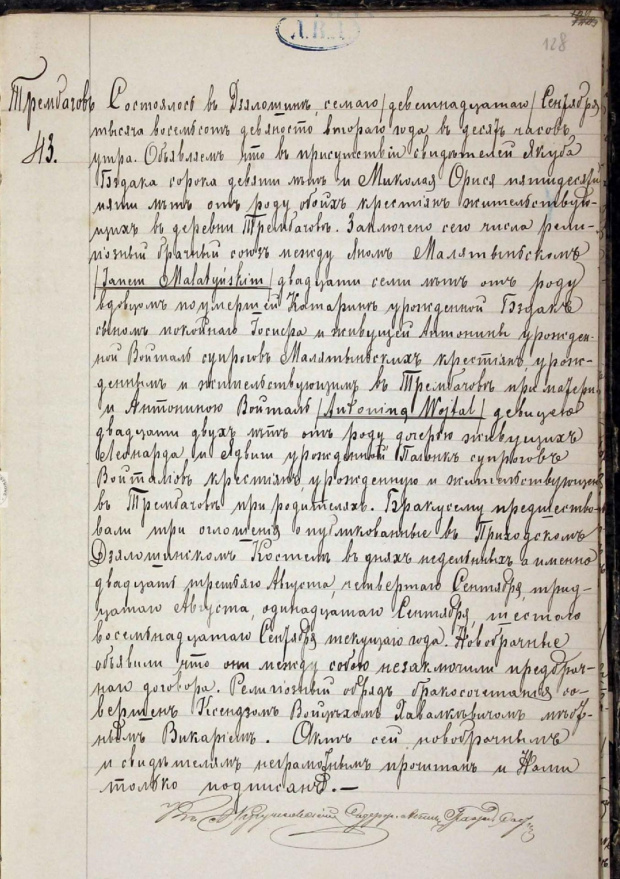 128
Трембачовъ
43.
Состоялось въ Дзялошинѣ, семаго /девятнадцатаго/ Сентября
тысяча восемьсотъ девяносто втораго года въ десять часовъ
утра. Объявляемъ что въ присутствіи свидѣтелей Якуба
Бздака сорока девяти лѣтъ и Миколая Орися пятидесяти
пяти лѣтъ отъ роду обоихъ крестьянъ жительствую-
щихъ въ деревни Трембачовъ. Заключено сего числа рели-
гіозный брачный союзъ между Яномъ Малятыньскимъ
/Janem Malatyńskim/ двадцати семи лѣтъ отъ роду
вдовцомъ по умершей Катаринѣ урожденной Бздакъ
сыномъ покойнаго Іосифа и живущей Антонины урожден-
ной Войталь супруговъ Малятыньскихъ крестьянъ, урож-
деннымъ и жительствующимъ въ Трембачовѣ при матери
и Антониною Войталь /Antoniną Wojtal/ девицею
двадцати двухъ лѣтъ отъ роду дочерью живущихъ
Леонарда и Ядвиги урожденной супруговъ
Войталовъ крестьянъ, урожденную и жительствующую
въ Трембачовѣ при родителяхъ. Браку сему предшество-
вали три оглашенія опубликованные въ Приходскомъ
Дзялошинскомъ Костелѣ въ дняхъ недельныхъ а именно
двадцать третьяго Августа, четвертаго Сентября, трид-
цатаго Августа, одинадцатаго Сентября, шестого
восемьнадцатаго Сентября текущаго года. Новобрачные
объявили что они между собою незаключили предбрач-
наго договора. Религіозный обрядъ бракосочетанія со-
вершенъ Ксендзомъ Войцѣхомъ Хавалкевичомъ мѣст-
нымъ Викаріемъ. Актъ сей новобрачнымъ
и свидѣтелямъ неграмотнымъ прочитанъ и Нами
только подписанъ. —